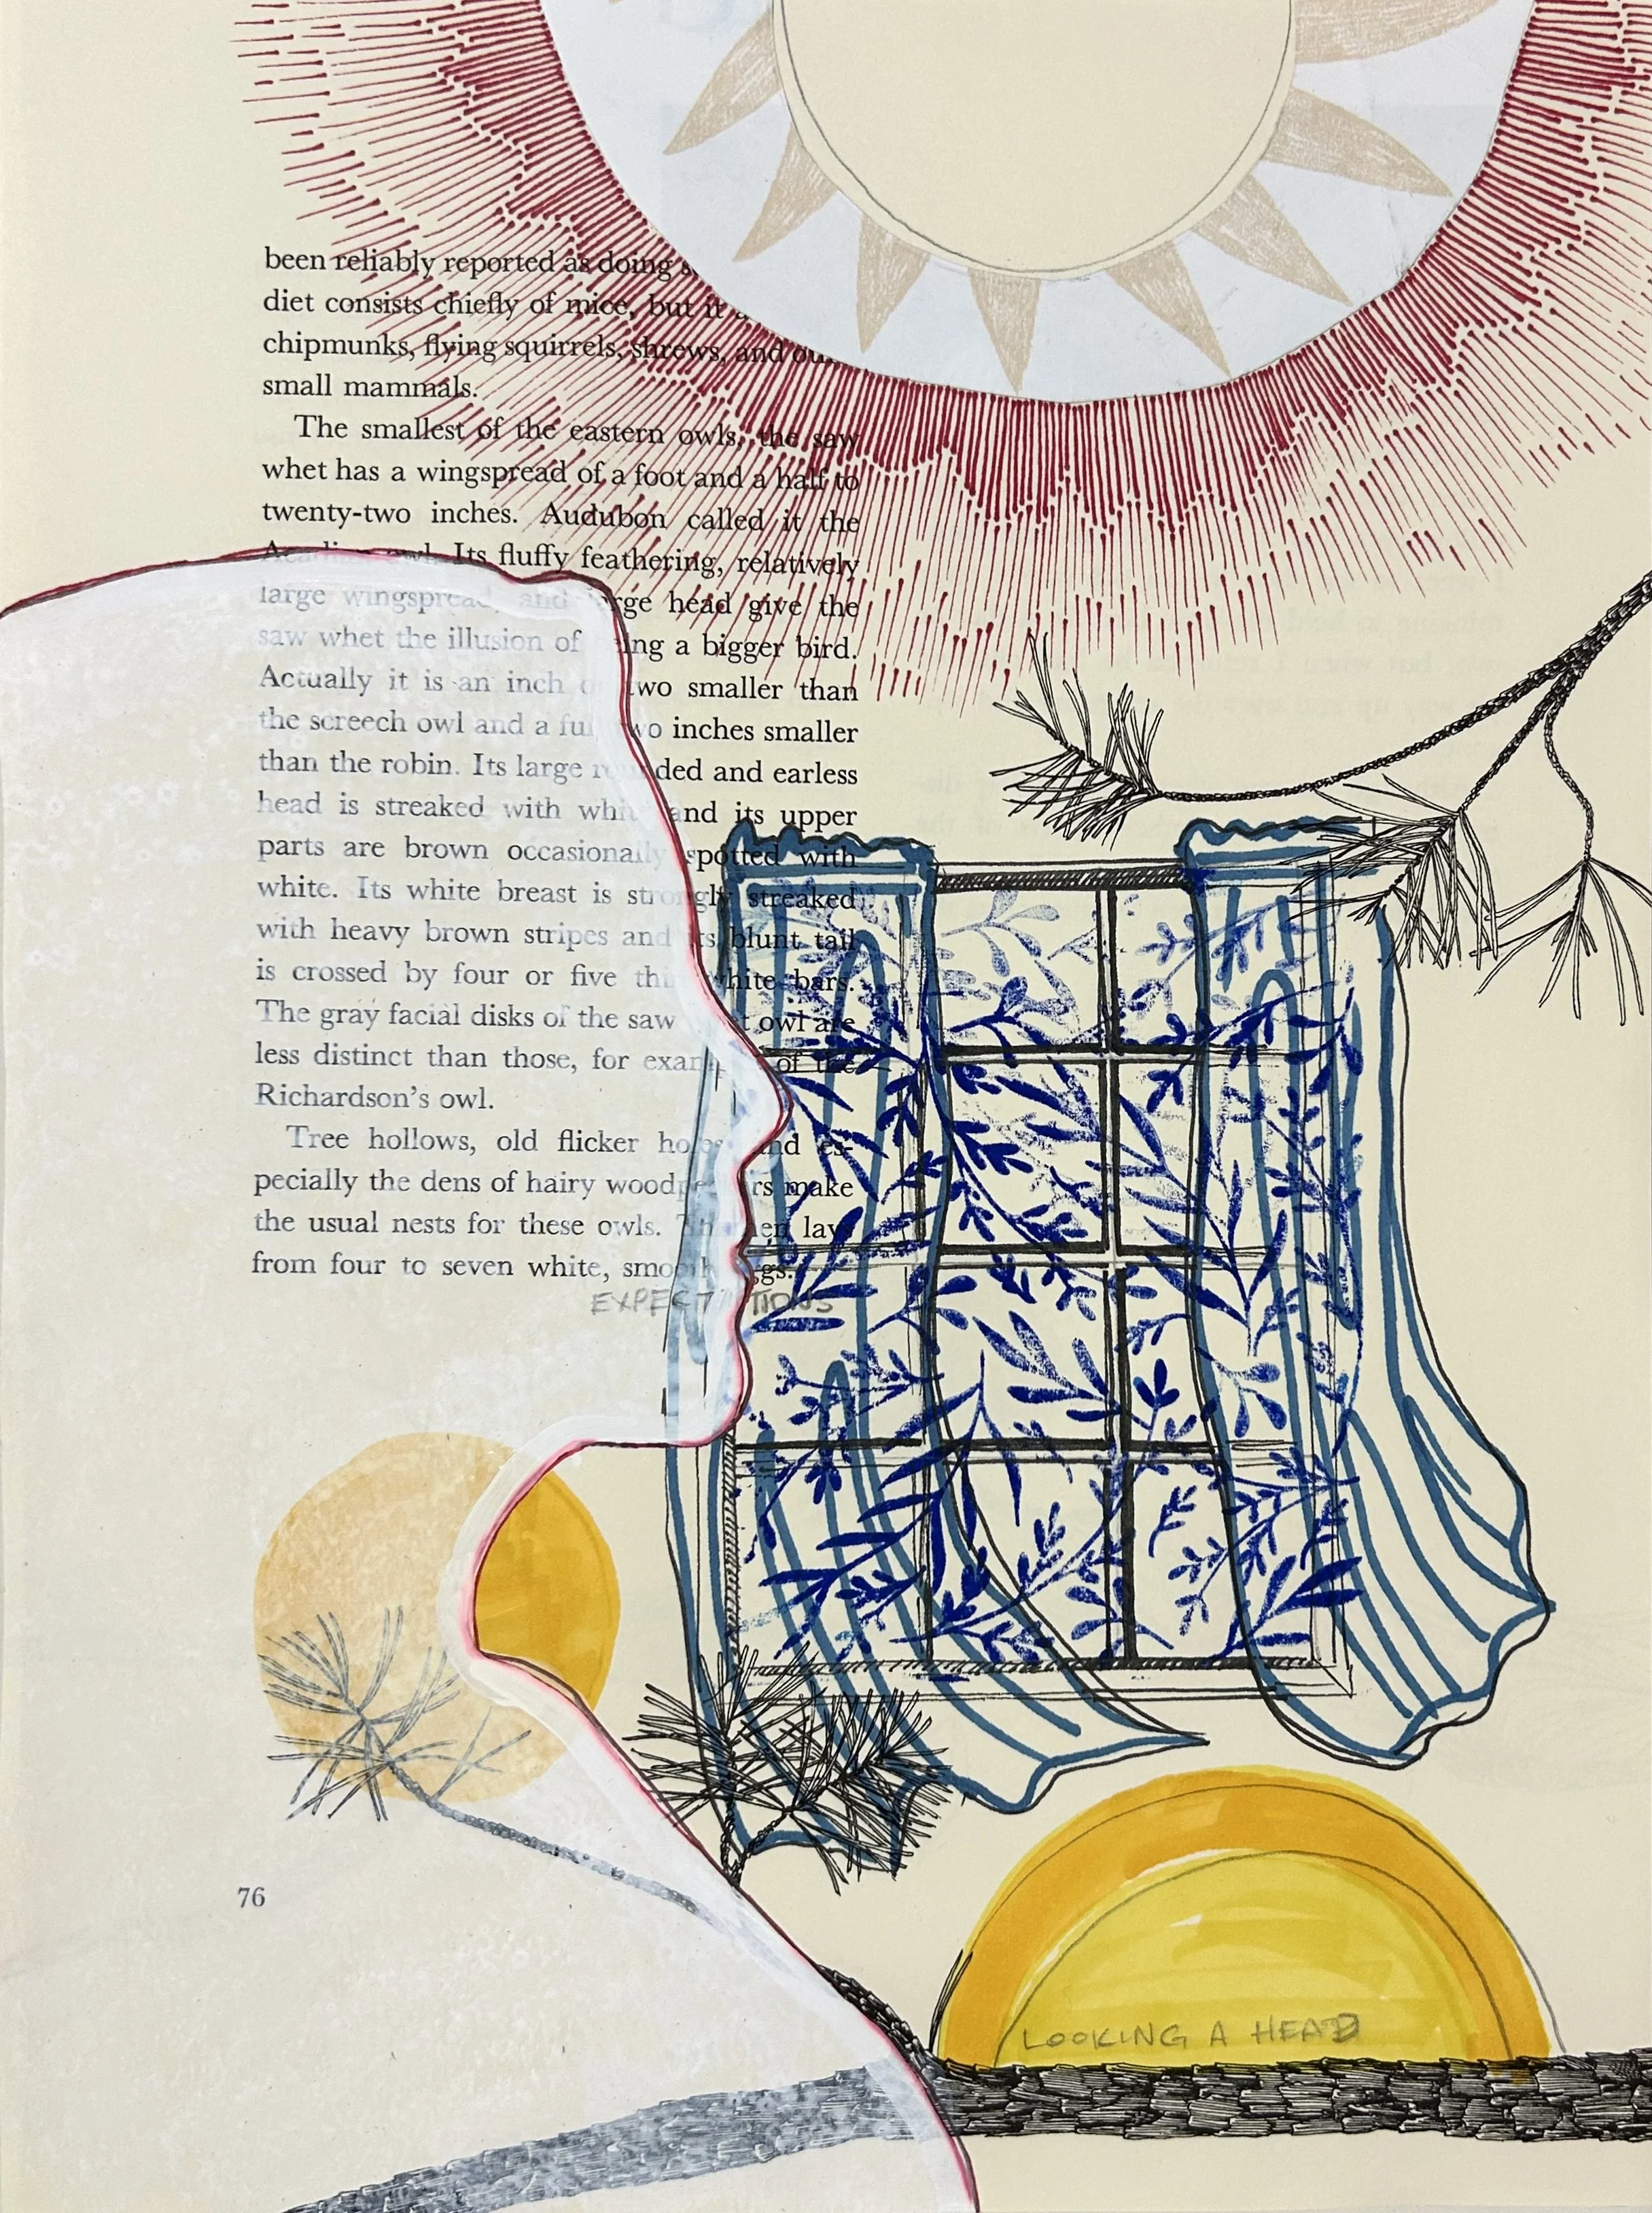 been reliably reported as doing
diet consists chiefly of mice, but it
chipmunks, flying squirrels, shrews, and
small mammals.
The smallest of the eastern owls, the saw
whet has a wingspread of a foot and a half to
twenty-two inches. Audubon called it the
Acadian owl. Its fluffy feathering, relatively
large wingspread, and large head give the
saw whet the illusion of being a bigger bird.
Actually it is an inch or two smaller than
the screech owl and a full two inches smaller
than the robin. Its large rounded and earless
head is streaked with white and its upper
parts are brown occasionally spotted with
white. Its white breast is strongly streaked
with heavy brown stripes and its blunt tail
is crossed by four or five thin white bars.
The gray facial disks of the saw whet owl are
less distinct than those, for example, of the
Richardson's owl.
Tree hollows, old flicker holes and es-
pecially the dens of hairy woodpeckers make
the usual nests for these owls. The hen lays
from four to seven white, smooth eggs.
EXPECTATIONS
76
LOOKING A HEAD